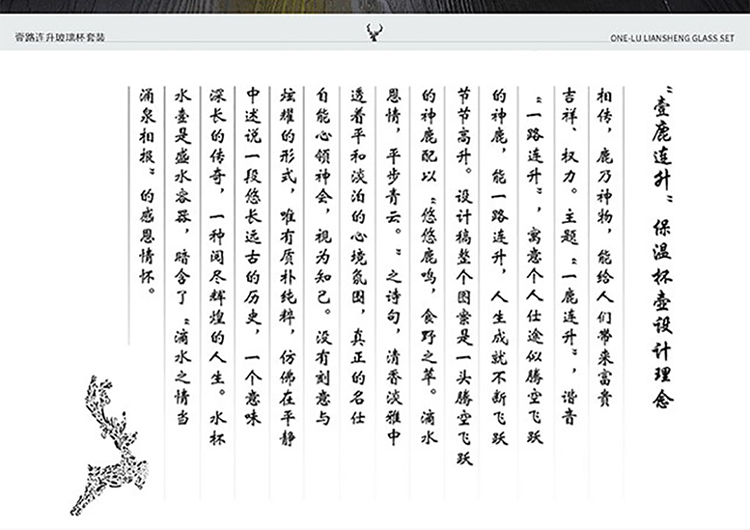 壹路连升玻璃杯套装
ONE-LU LIANSHENG GLASS SET
“壹鹿连升”保温杯壶设计理念
相传，鹿乃神物，能给人们带来富贵
吉祥、权力。主题“一鹿连升”，谐音
“一路连升”，寓意个人仕途似腾空飞跃
的神鹿，能一路连升，人生成就不断飞跃
节节高升。设计稿整个图案是一头腾空飞跃
的神鹿配以“悠悠鹿鸣，食野之苹。滴水
恩情，平步青云。”之诗句，清香淡雅中
透着平和淡泊的心境氛围，真正的名仕
自能心领神会，视为知己。没有刻意与
炫耀的形式，唯有质朴纯粹，仿佛在平静
中述说一段悠长远古的历史，一个意味
深长的传奇，一种阅尽辉煌的人生。水杯
水壶是盛水容器，暗含了“滴水之情当
涌泉相报”的感恩情怀。